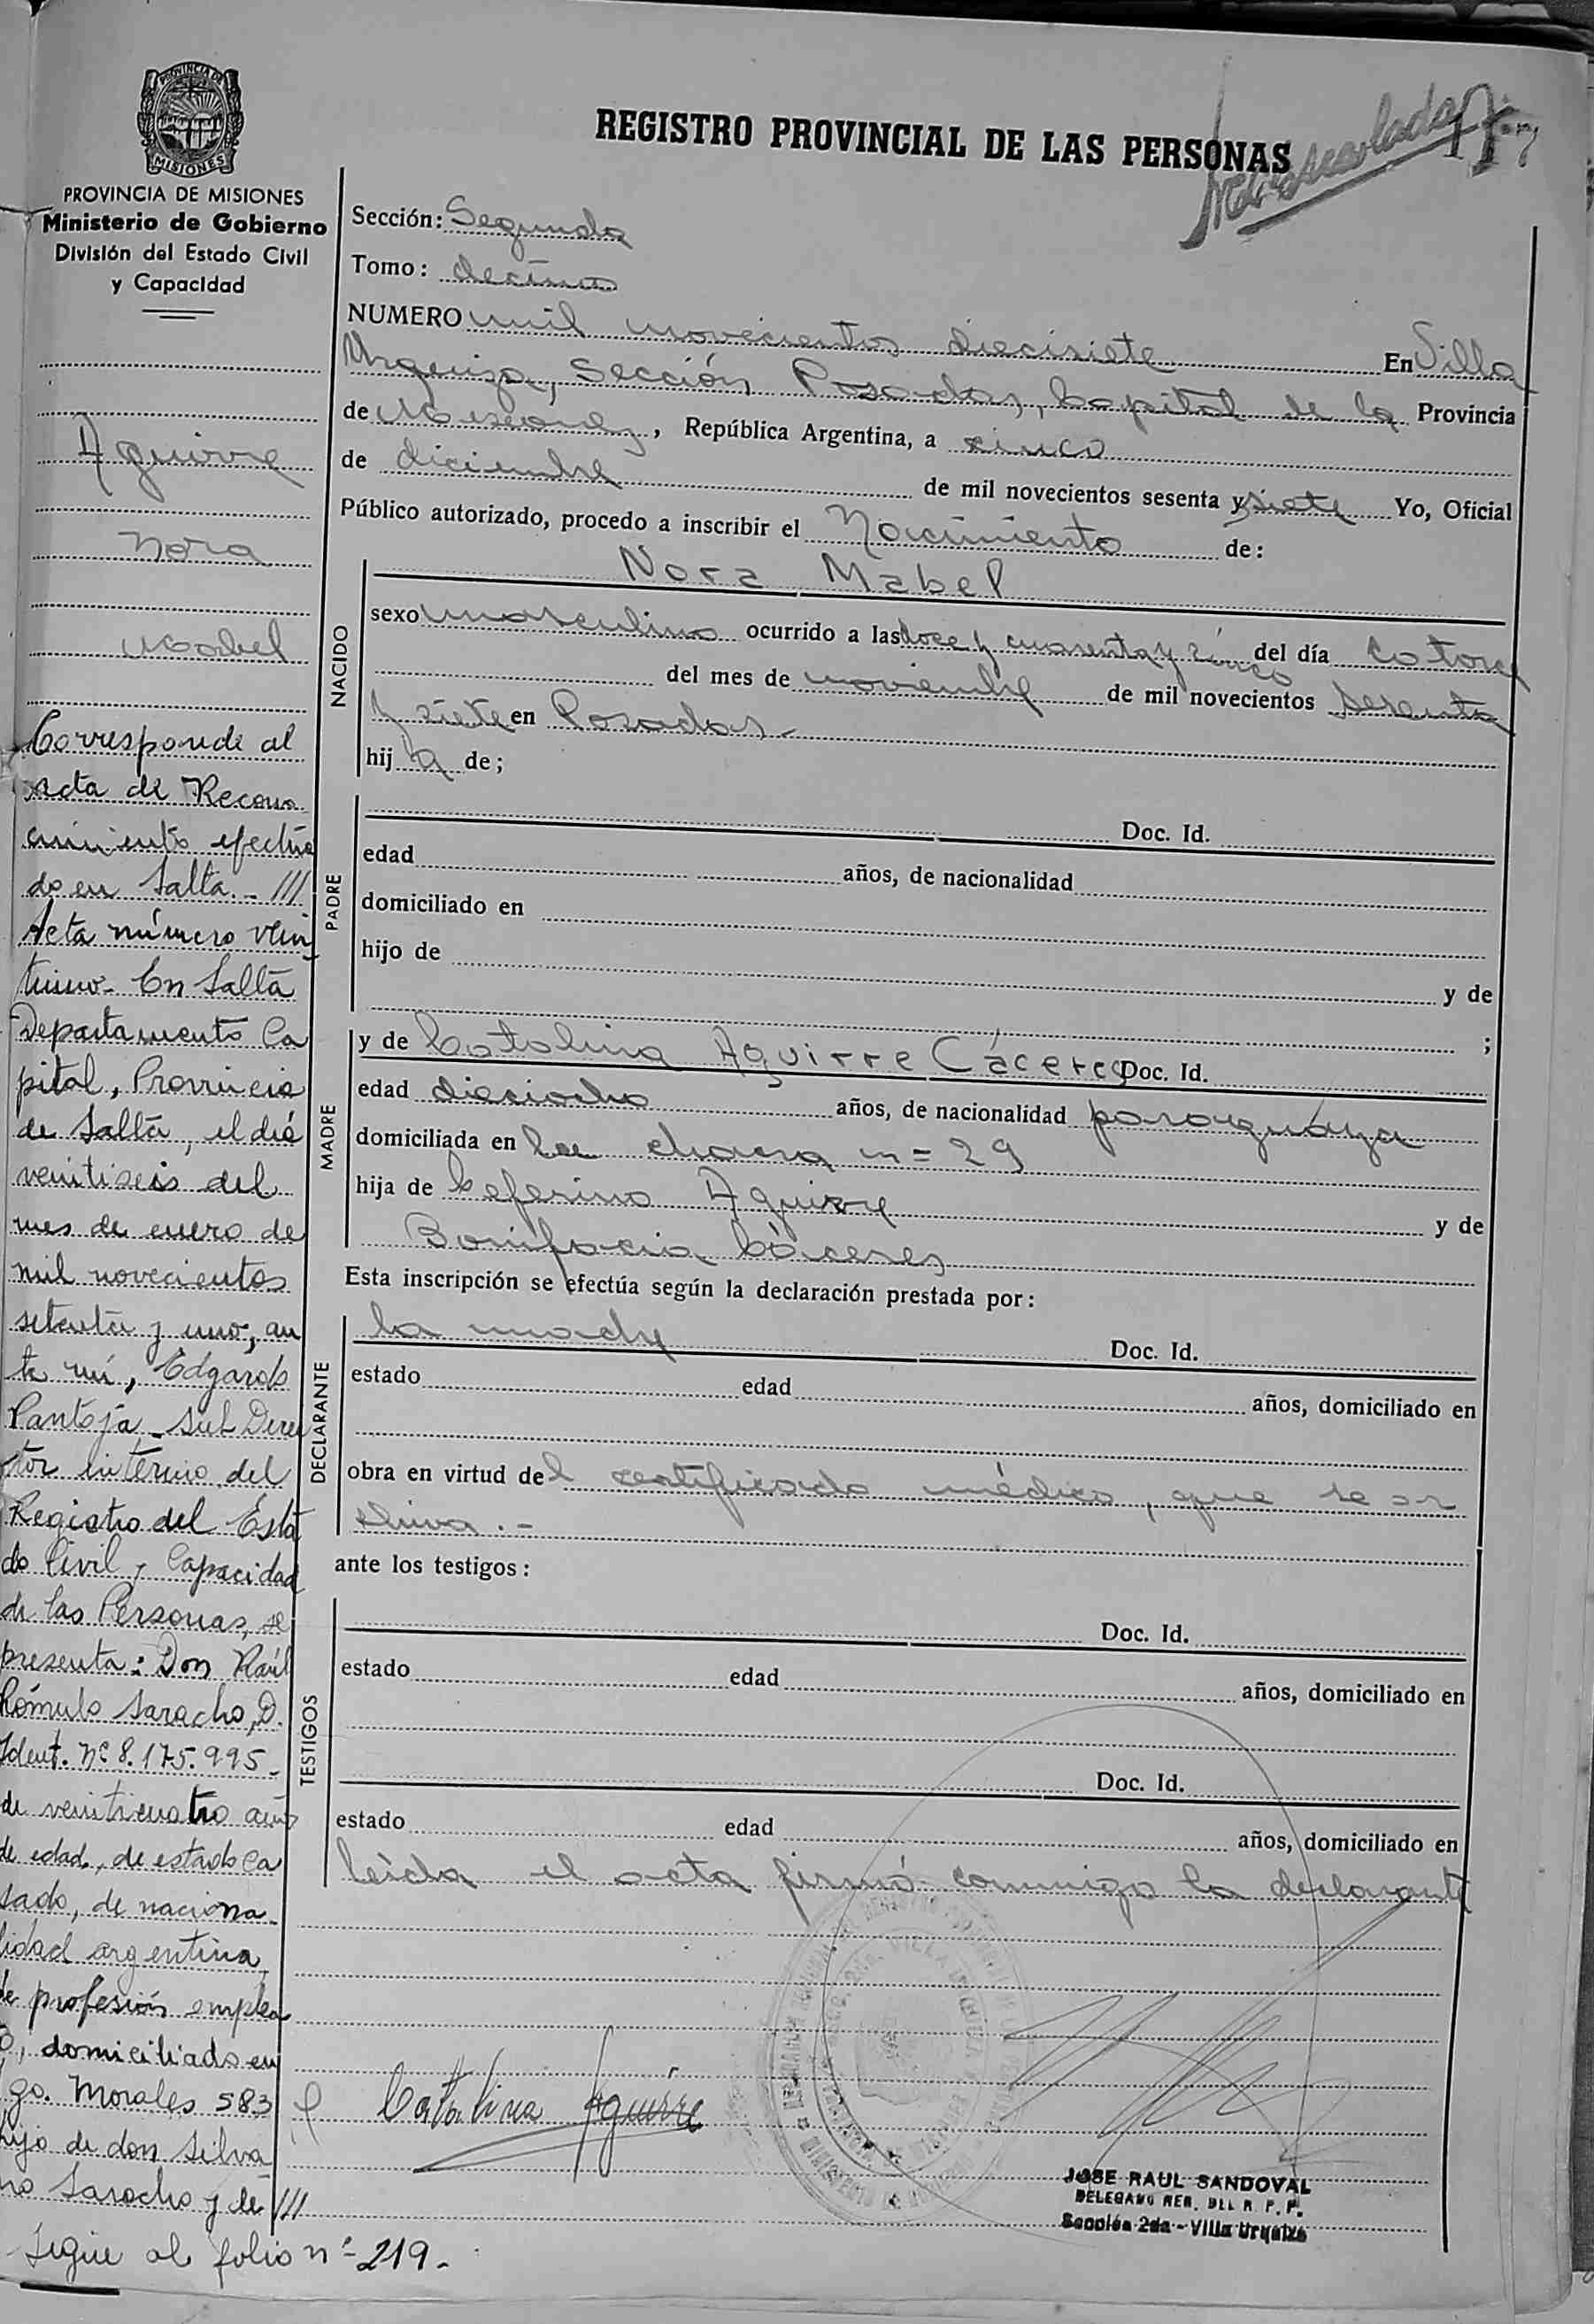 REGISTRO PROVINCIAL DE LAS PERSONAS
PROVINCIA DE
MISIONES
PROVINCIA DE MISIONES
Ministerio de Gobierno
División del Estado Civil
y Capacidad
Aguirre
Nora
Mabel
Corresponde al
acta de Recono
cimiento efectua
do en Salta.- ///
Acta número vein
tiuno- En Salta
Departamento Ca
pital, Provincia
de Salta, el día
veintiseis del
mes de enero de
mil novecientos
setenta y uno, an
te mí, Edgardo
Pantoja - Sub Direc
tor interino del
Registro del Esta
do Civil y Capacidad
de las Personas, se
presenta: Don Raúl
Rómulo Saracho, D.
Ident. Nº 8.175.995-
de veinticuatro años
de edad, de estado ca
sado, de naciona-
lidad argentina,
de profesión emplea
o, domiciliado en
go. Morales 583
hijo de don Silva
no Saracho y de ///
Sigue al folio nº 219-
Sección: Segunda
Tomo: decimo
NUMERO mil novecientos diecisiete En Villa
Urquiza, Sección Posadas, Capital de la Provincia
de Misiones, República Argentina, a cinco
de diciembre de mil novecientos sesenta y siete Yo, Oficial
Público autorizado, procedo a inscribir el Nacimiento de:
NACIDO
Nora Mabel
sexo masculino ocurrido a las doce y cuarenta y cinco del día catorce
del mes de noviembre de mil novecientos sesenta
y siete en Posadas.-
hij a de;
PADRE
Doc. Id.
edad años, de nacionalidad
domiciliado en
hijo de
y de
;
MADRE
y de Catalina Aguirre Cáceres Doc. Id.
edad dieciocho años, de nacionalidad paraguaya
domiciliada en la chacra n= 29
hija de Ceferino Aguirre y de
Bonifacia Cáceres
Esta inscripción se efectúa según la declaración prestada por:
DECLARANTE
la madre Doc. Id.
estado edad años, domiciliado en
obra en virtud del certificado médico, que se ar
chiva.-
ante los testigos:
TESTIGOS
Doc. Id.
estado edad años, domiciliado en
Doc. Id.
estado edad años, domiciliado en
leida el acta firmó conmigo la declarante
Catalina Aguirre
JOSE RAUL SANDOVAL
DELEGADO REG. DEL R. P. P.
Sección 2da - Villa Urquiza